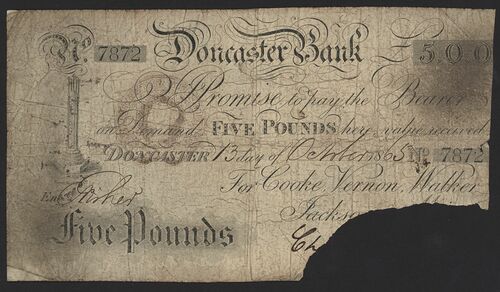 No. 7872 Doncaster Bank £5,00
I Promise to pay the Bearer
on Demand FIVE POUNDS here value received
DONCASTER 13 day of October 1865 No. 7872
For Cooke, Vernon, Walker
Entd. Fisher Jackson
Five Pounds